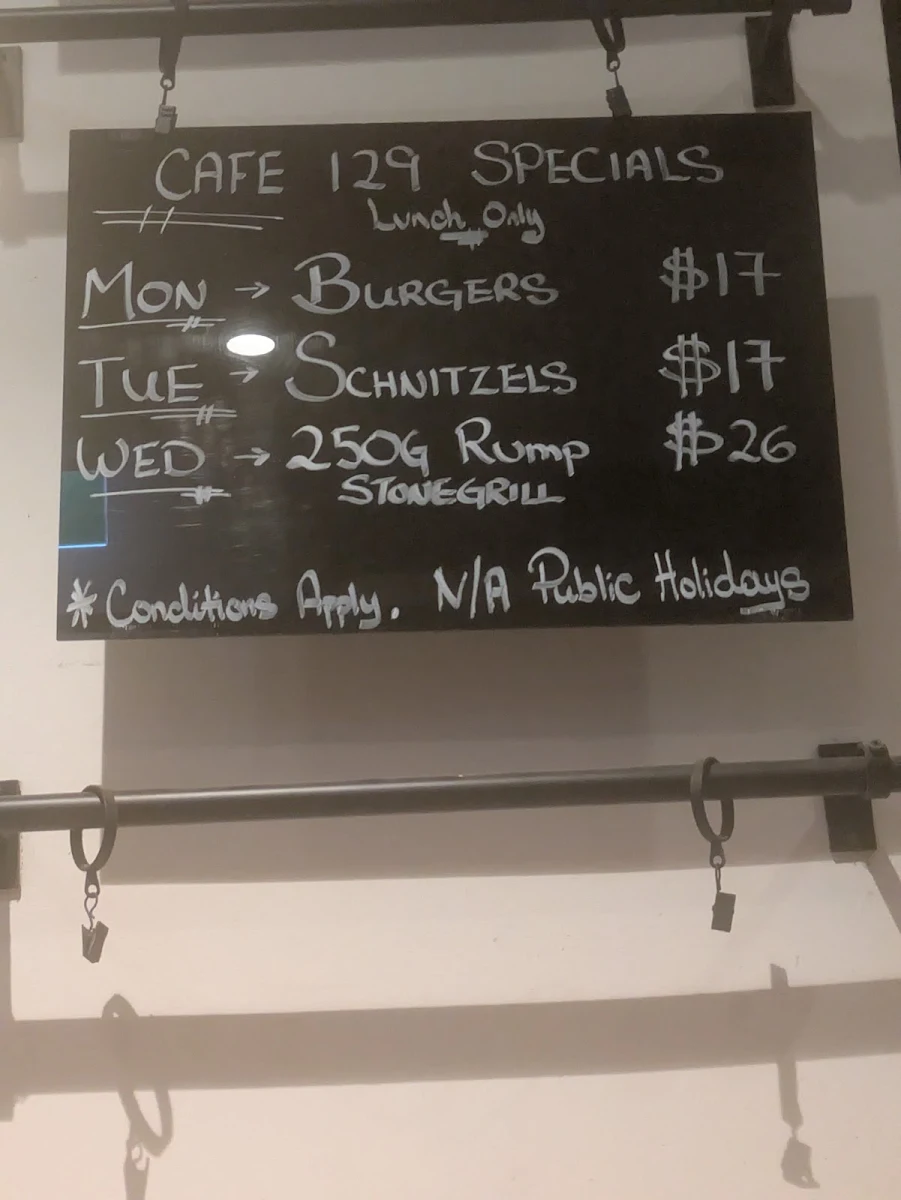 CAFE 129 SPECIALS
Lunch Only
MON → BURGERS $17
TUE → SCHNITZELS $17
WED → 250G Rump $26
STONEGRILL
* Conditions Apply. N/A Public Holidays